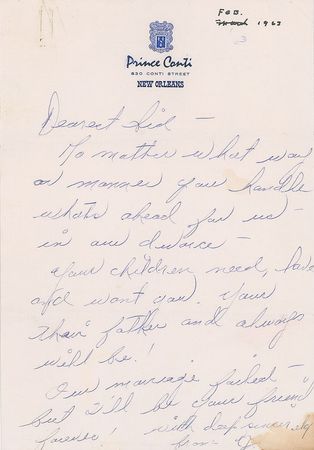 FEB.
March 1963
3
Prince Conti
830 CONTI STREET
NEW ORLEANS
Dearest Sid –
No matter what way
or manner you handle
whats ahead for us –
in our divorce –
your children need, have
and want you. Your
their father and always
will be!
Our marriage failed –
but I'll be your friend
forever! with deep sincerity
from